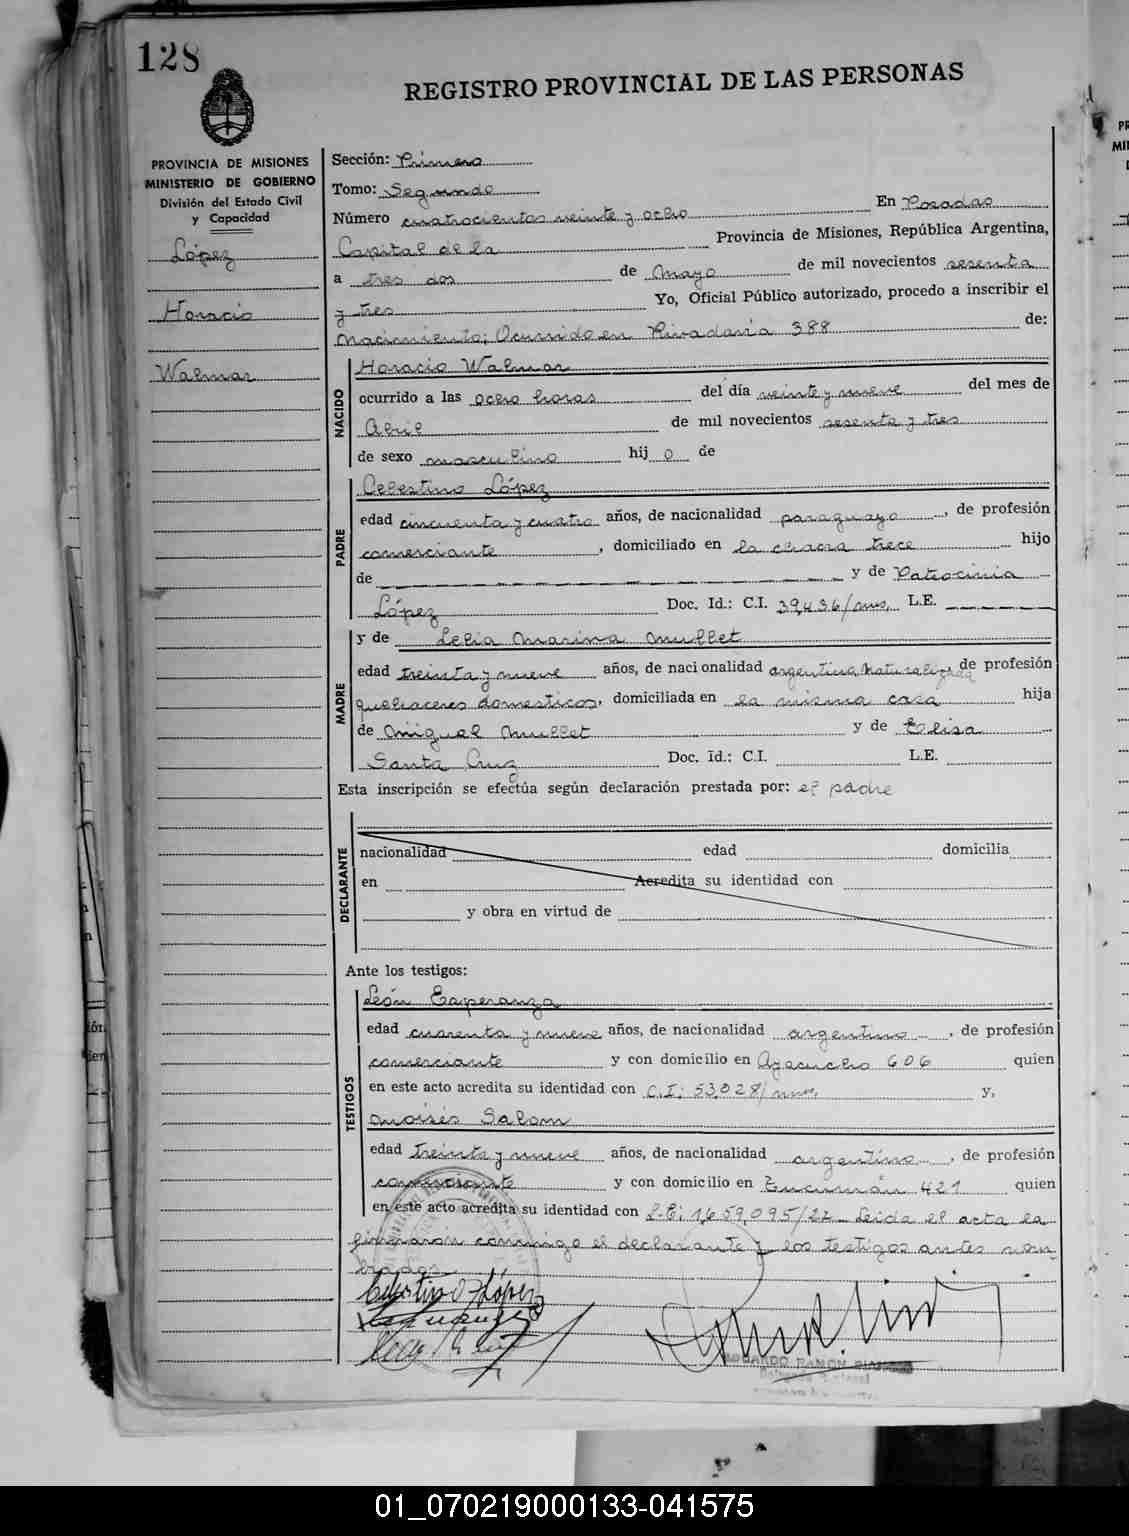 128
REGISTRO PROVINCIAL DE LAS PERSONAS
PROVINCIA DE MISIONES
MINISTERIO DE GOBIERNO
División del Estado Civil
y Capacidad
López
Horacio
Walmar
Sección: Primera
Tomo: Segundo
Número cuatrocientos veinte y ocho En Posadas
Capital de la Provincia de Misiones, República Argentina,
a tres dos de Mayo de mil novecientos sesenta
y tres Yo, Oficial Público autorizado, procedo a inscribir el
Nacimiento; Ocurrido en Rivadavia 388 de:
NACIDO
Horacio Walmar
ocurrido a las ocho horas del día veinte y nueve del mes de
Abril de mil novecientos sesenta y tres
de sexo masculino hij o de
PADRE
Celestino López
edad cincuenta y cuatro años, de nacionalidad paraguayo, de profesión
comerciante, domiciliado en la chacra trece hijo
de y de Patrocinia
López Doc. Id.: C.I. 39,436/mnes. L.E.
MADRE
y de Lelia Marina Mullet
edad treinta y nueve años, de nacionalidad argentina naturalizada, de profesión
quehaceres domesticos, domiciliada en la misma casa hija
de Miguel Mullet y de Elisa
Santa Cruz Doc. Id.: C.I. L.E.
Esta inscripción se efectúa según declaración prestada por: el padre
DECLARANTE
nacionalidad edad domicilia
en Acredita su identidad con
y obra en virtud de
Ante los testigos:
TESTIGOS
León Esperanza
edad cuarenta y nueve años, de nacionalidad argentino, de profesión
comerciante y con domicilio en Ayacucho 606 quien
en este acto acredita su identidad con C.I: 53,028/mnes. y,
Moisés Salom
edad treinta y nueve años, de nacionalidad argentino, de profesión
comerciante y con domicilio en Tucumán 421 quien
en este acto acredita su identidad con L.E: 1,659,095/22 Leida el acta la
firmaron conmigo el declarante y los testigos antes nom-
brados.
Celestino López
EDUARDO RAMON
01_070219000133-041575